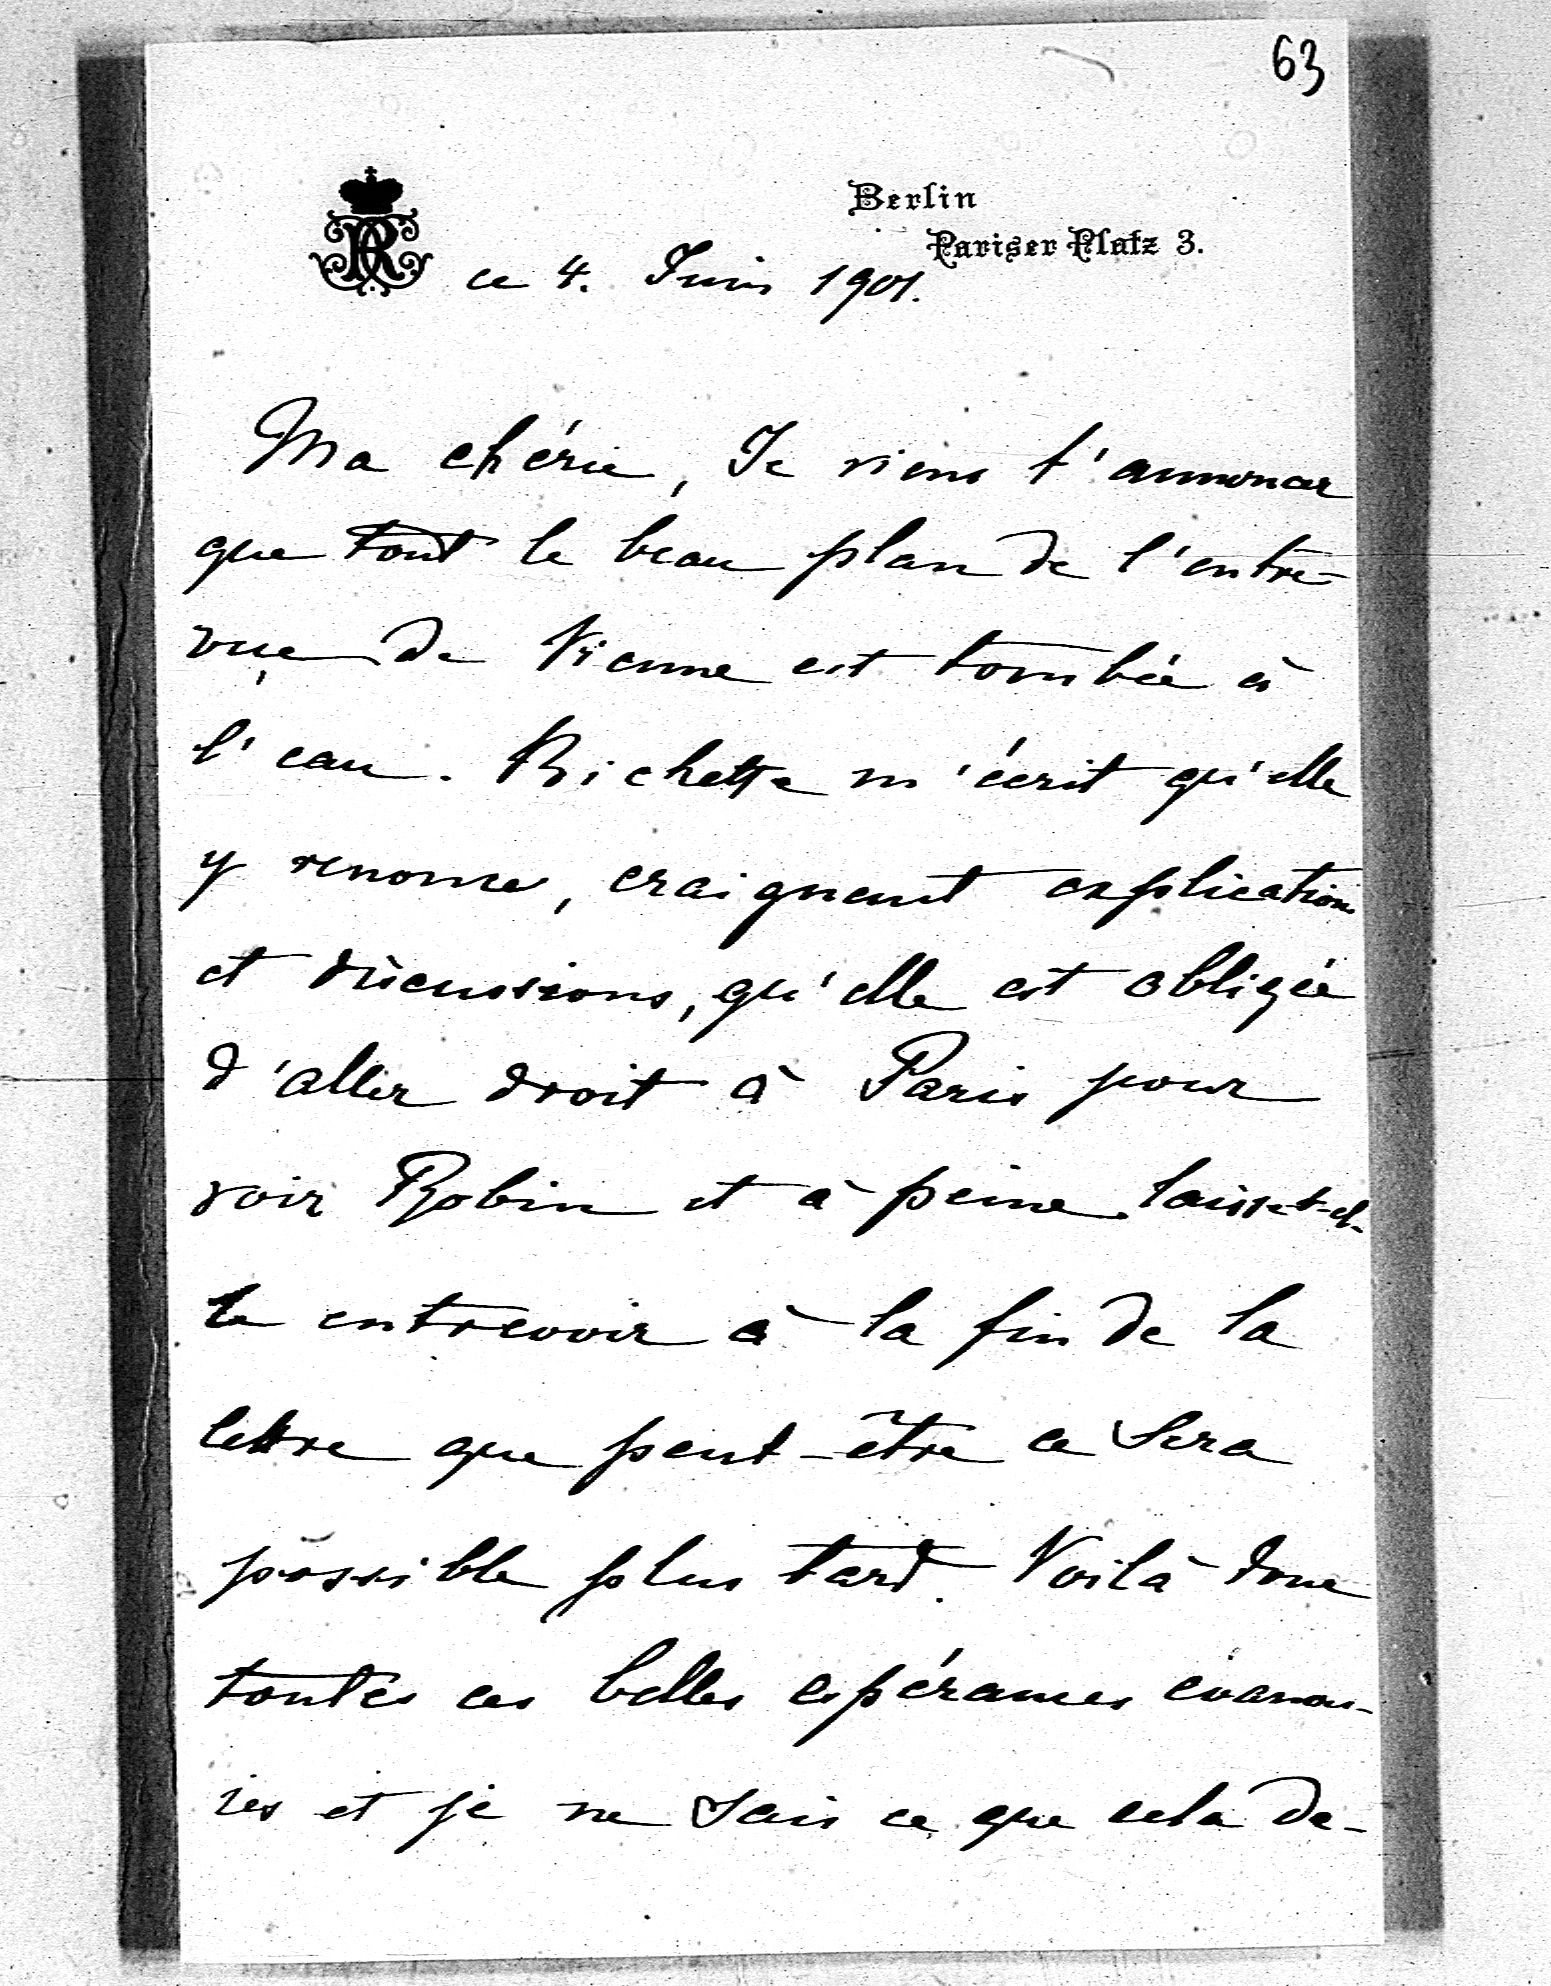 63
Berlin
Pariser Platz 3.
ce 4. Juin 1901.
Ma chérie, Je viens t'annoncer
que tout le beau plan de l'entre-
vue de Vienne est tombée à
l'eau. Bichette m'écrit qu'elle
y renonce, craignant explications
et discussions, qu'elle est obligée
d'aller droit à Paris pour
voir Robin et à peine laisse-t-el-
le entrevoir à la fin de la
lettre que peut-être ce sera
possible plus tard. Voilà donc
toutes ces belles espérances évanou-
ies et je ne sais ce que cela de-